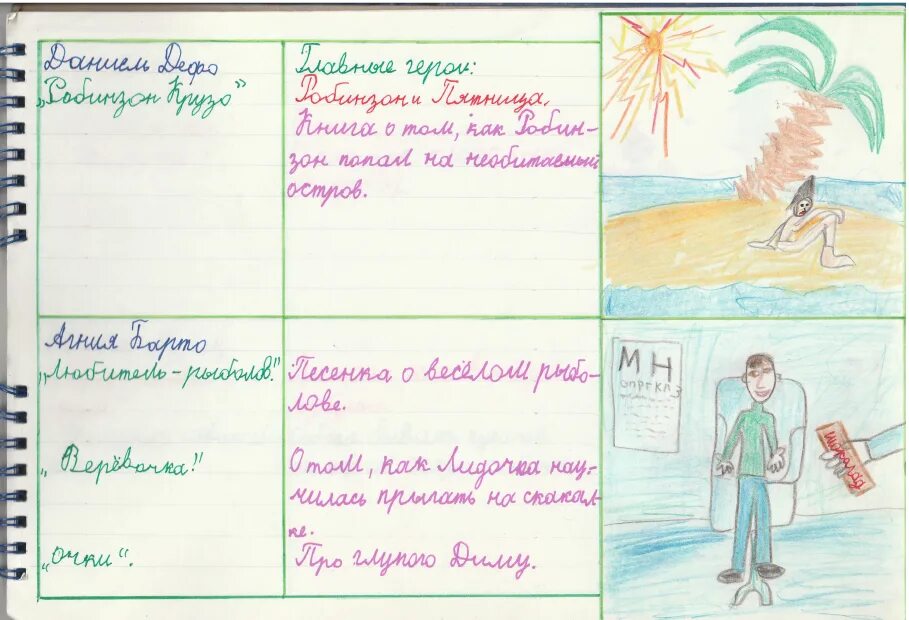 Даниель Дефо
„Робинзон Крузо"
Главные герои:
Робинзон и Пятница.
Книга о том, как Робин-
зон попал на необитаемый
остров.
Агния Барто
„Любитель-рыболов."
Песенка о весёлом рыбо-
лове.
„Верёвочка!"
О том, как Лидочка нау-
чилась прыгать на скакал-
ке.
„Очки".
Про глупого Диму.
М Н
шоколад